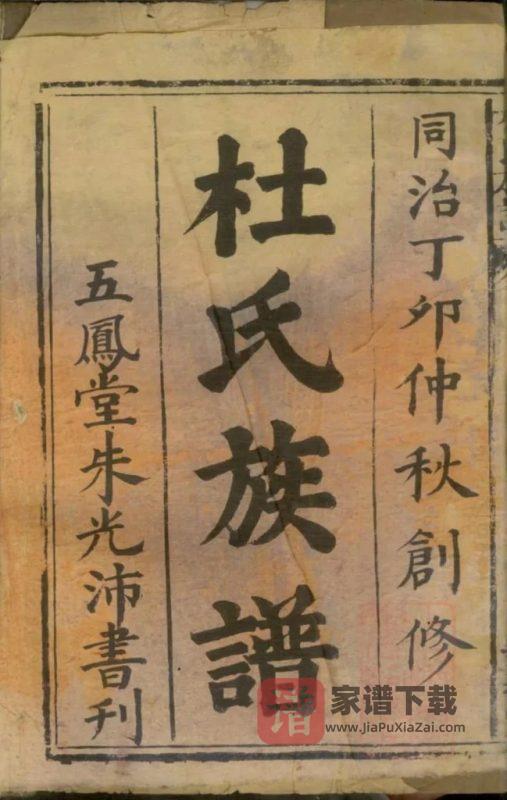 同治丁卯仲秋創修
杜氏族譜
五鳳堂朱光沛書刊
谱
家谱下载
www.JiaPuXiaZai.com